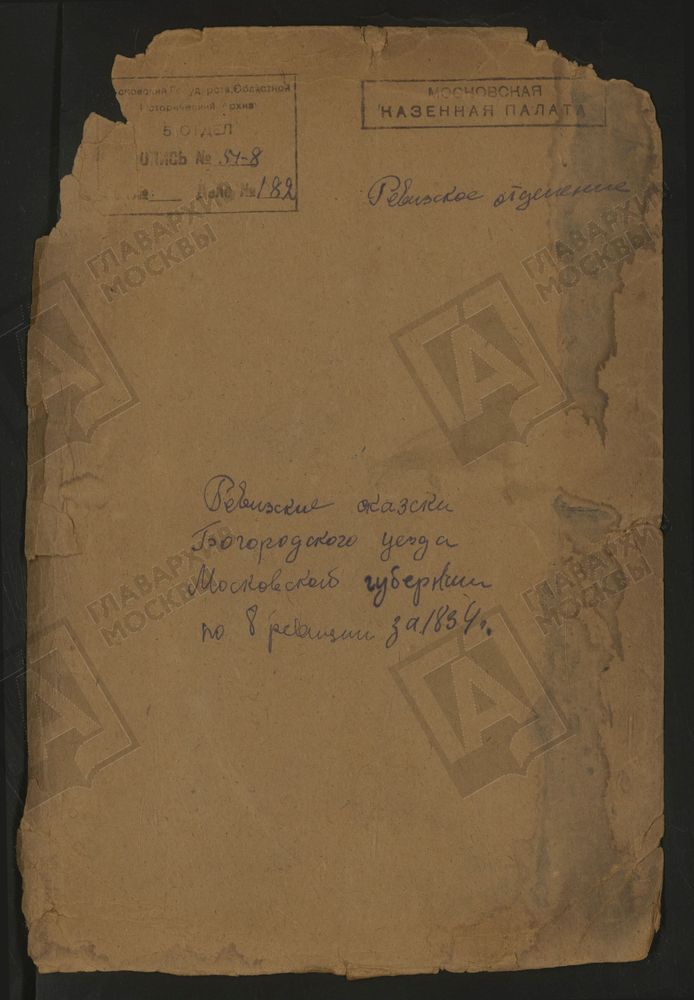 Московский Государств. Областной
Исторический Архив
5 ОТДЕЛ
ОПИСЬ № 51-8
Дело № 182
МОСКОВСКАЯ
КАЗЕННАЯ ПАЛАТА
Ревизское отделение
Ревизские сказски
Богородского уезда
Московской губернии
по 8 ревизии за 1834г.
ГЛАВАРХИВ МОСКВЫ
ГЛАВАРХИВ МОСКВЫ
ГЛАВАРХИВ МОСКВЫ
ГЛАВАРХИВ МОСКВЫ